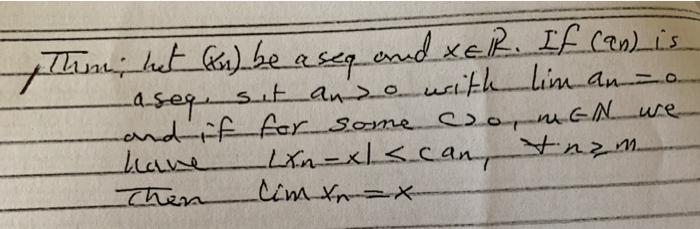 Thm: let (xn) be a seq and x∈ℝ. If (an) is
a seq. s.t an>0 with lim an = 0
and if for some c>0, m∈N we
have |xn-x| < c an, ∀ n≥m
Then lim xn = x